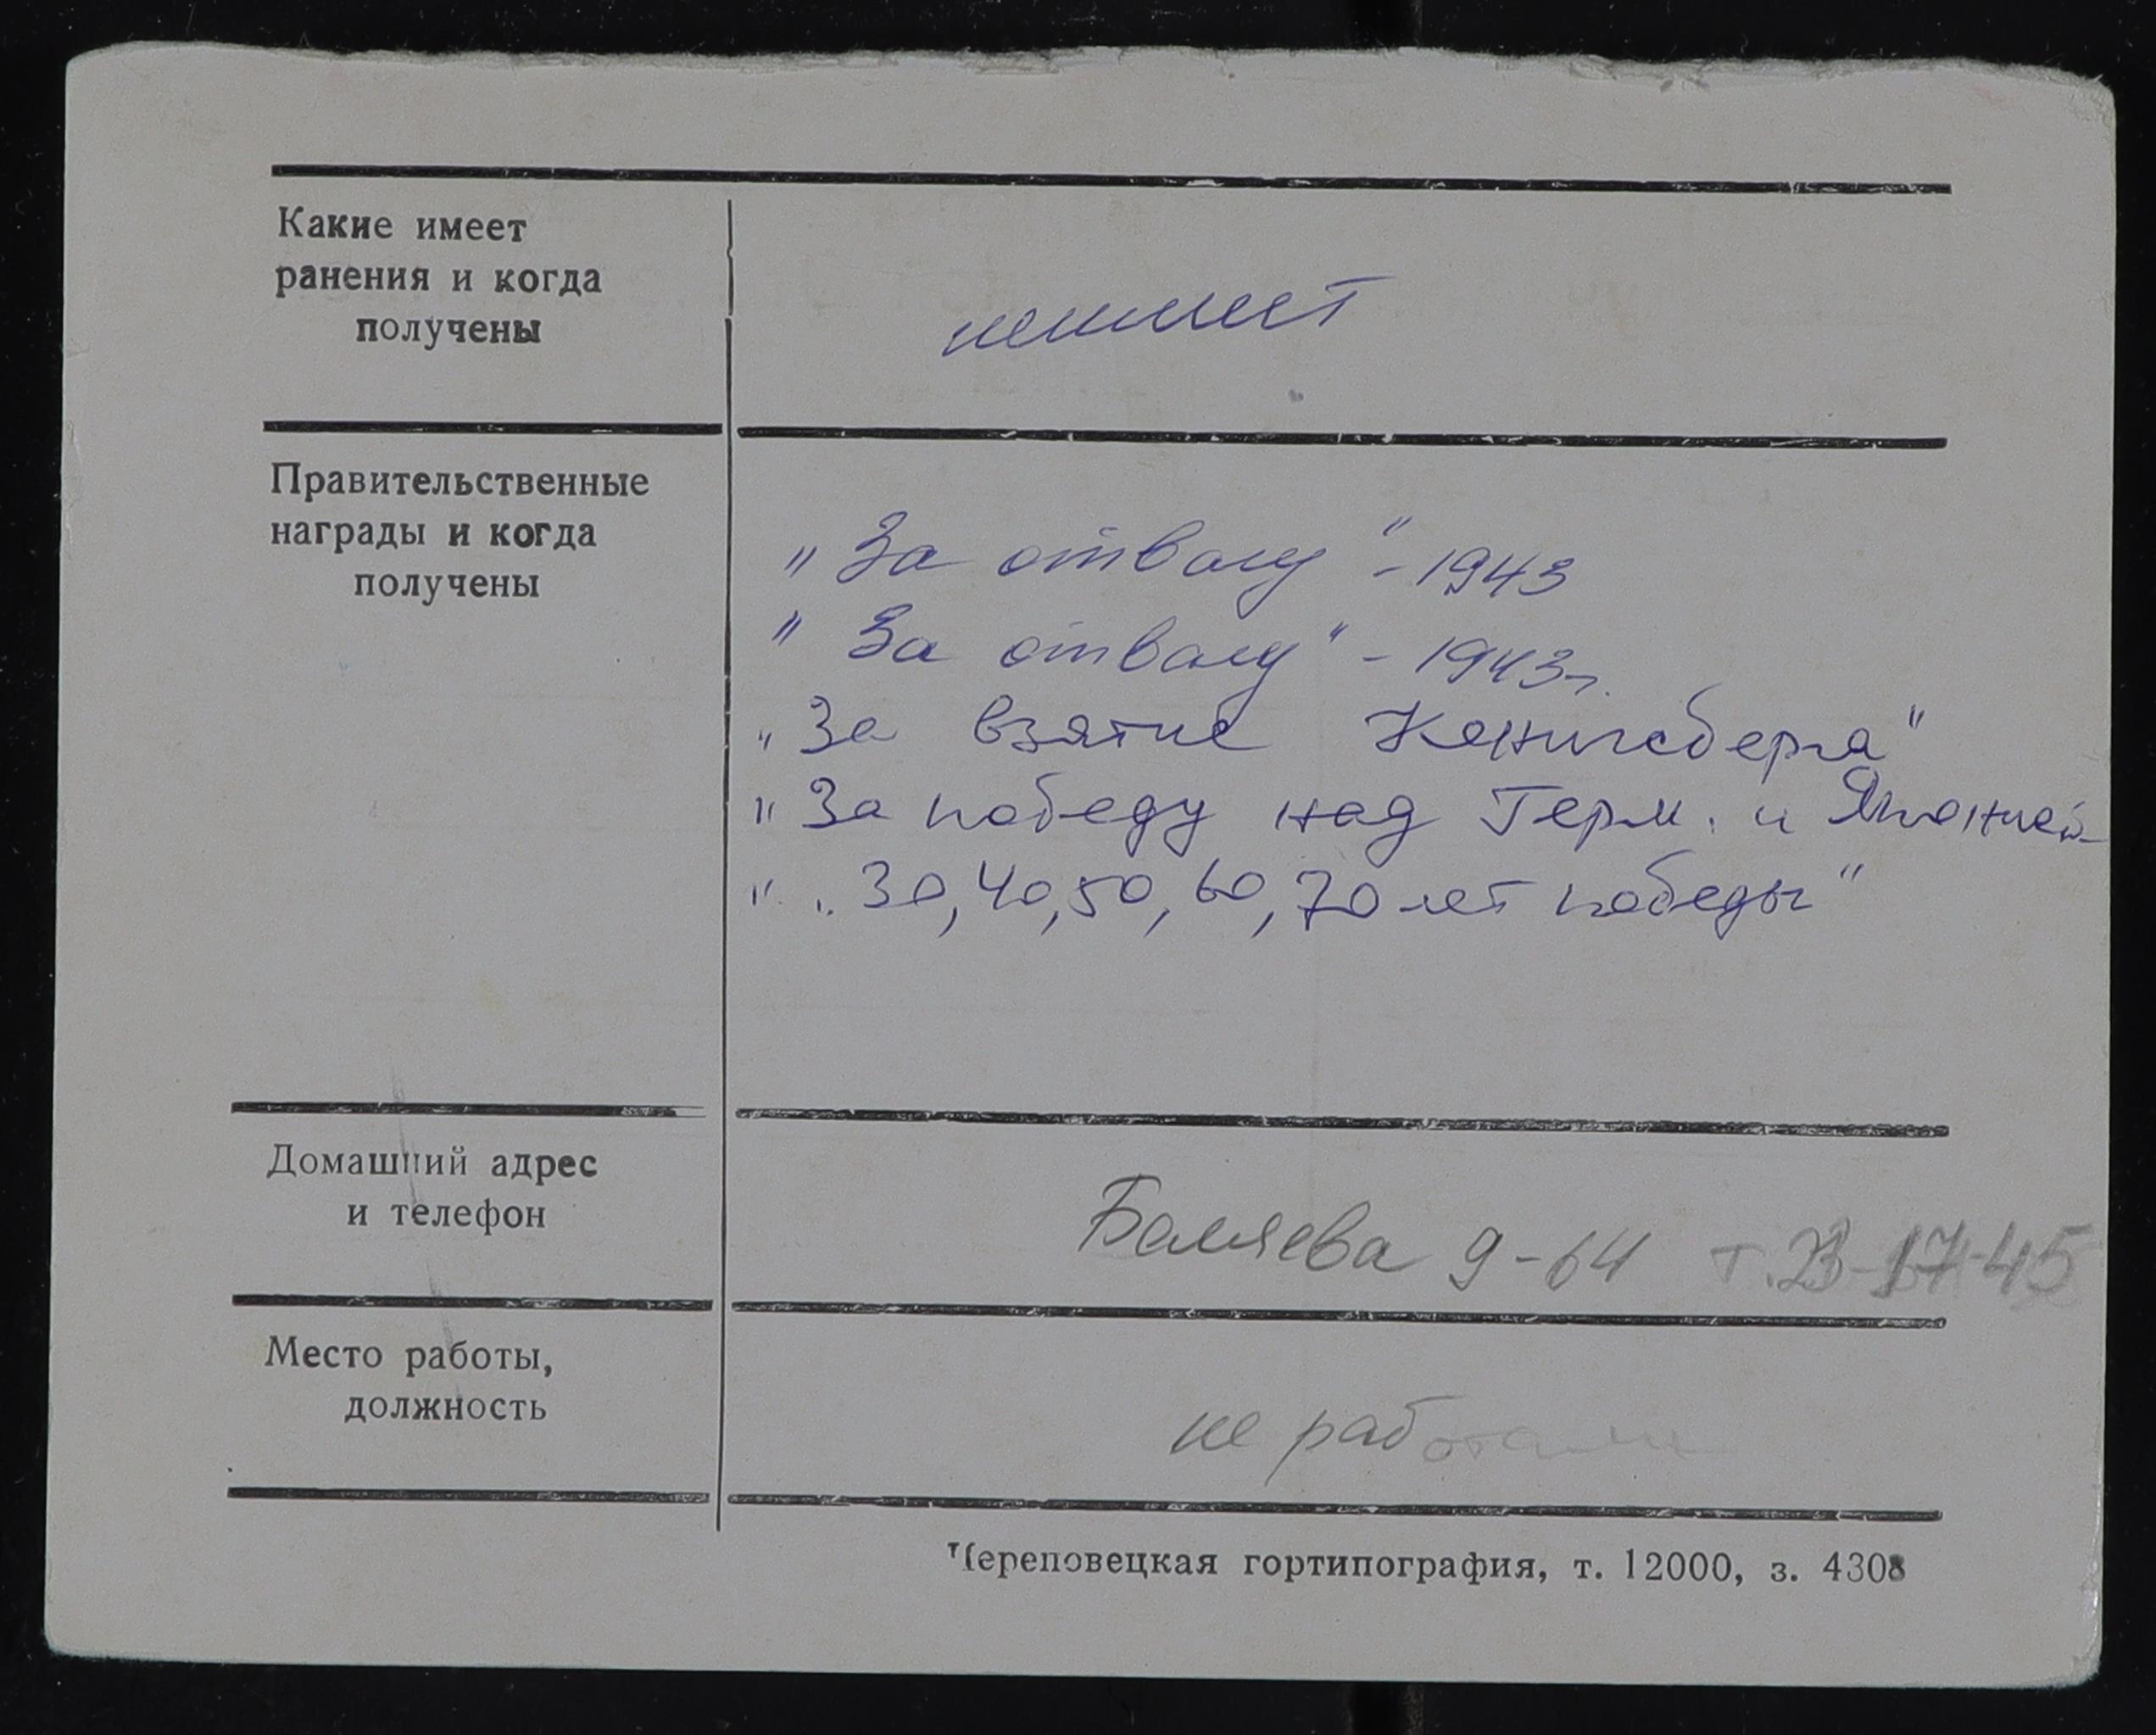 Какие имеет
ранения и когда
получены
неимеет
Правительственные
награды и когда
получены
„За отвагу" - 1943
"За отвагу" - 1943г.
„За взятие Кенигсберга"
"За победу над Герм. и Японией
" „30, 40, 50, 60, 70 лет победы"
Домашний адрес
и телефон
Беляева 9-64 т. 23-17-45
Место работы,
должность
не раб
Череповецкая гортипография, т. 12000, з. 4308